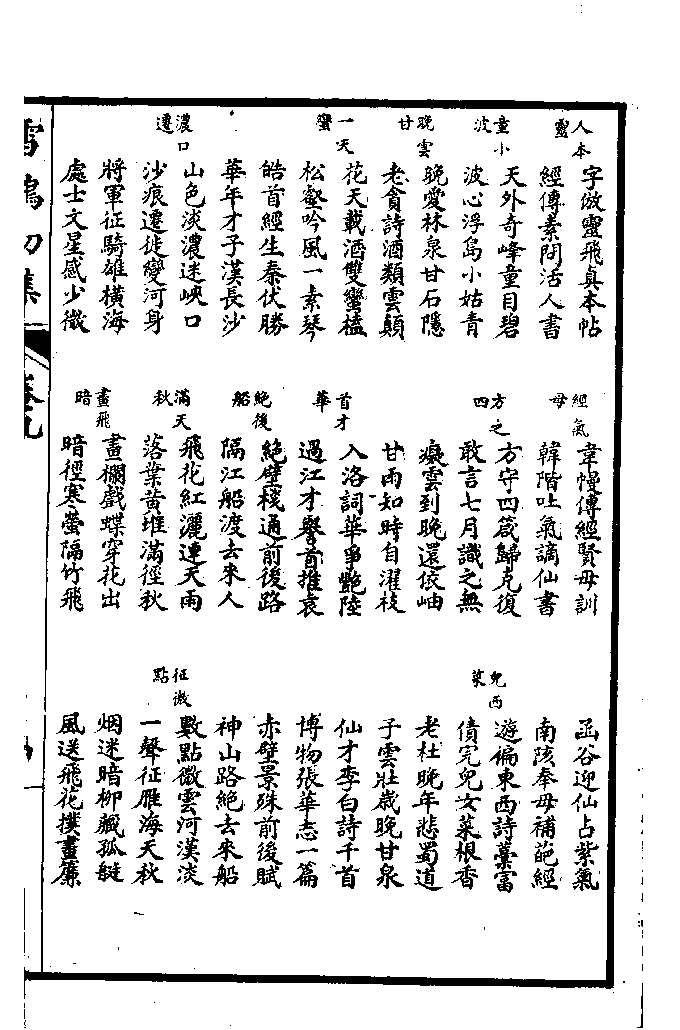 人本靈
字倣靈飛真本帖
經傳素問活人書
經氣母
韋幔傳經賢母訓
韓階吐氣謫仙書
函谷迎仙占紫氣
南陔奉母補葩經
童小波
天外奇峰童目碧
波心浮島小姑青
方之四
方守四箴歸克復
敢言七月識之無
兒西菜
遊偏東西詩藁富
債完兒女菜根香
晚雲甘
晚愛林泉甘石隱
老貪詩酒類雲顛
癡雲到晚還依岫
甘雨知時自濯枝
老杜晚年悲蜀道
子雲壯歲晚甘泉
一天蠻
花天載酒雙蠻榼
松壑吟風一素琴
首才華
入洛詞華爭艷陸
過江才譽首推哀
仙才李白詩千首
博物張華志一篇
皓首經生秦伏勝
華年才子漢長沙
絕後船
絕壁棧通前後路
隔江船渡去來人
赤壁景殊前後賦
神山路絕去來船
濃口遷
山色淡濃迷峽口
沙痕遷徙變河身
滿天秋
飛花紅灑連天雨
落葉黃堆滿徑秋
征微點
數點微雲河漢淡
一聲征雁海天秋
將軍征騎雄橫海
處士文星感少微
畫飛暗
畫欄戲蝶穿花出
暗徑寒螢隔竹飛
烟迷暗柳藏孤艇
風送飛花撲畫簾
雪鴻初集
卷九